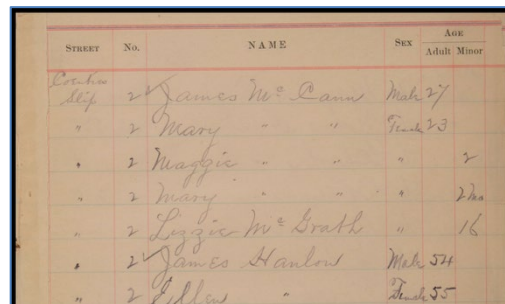 STREET No. NAME SEX AGE
Adult Minor
Coenties
Slip 2 James Mc Cann Male 27
" 2 Mary " " Female 23
" 2 Maggie " " " 2
" 2 Mary " " " 2 mo
" 2 Lizzie Mc Grath " 16
" 2 James Hanlon Male 54
" 2 Ellen " Female 55